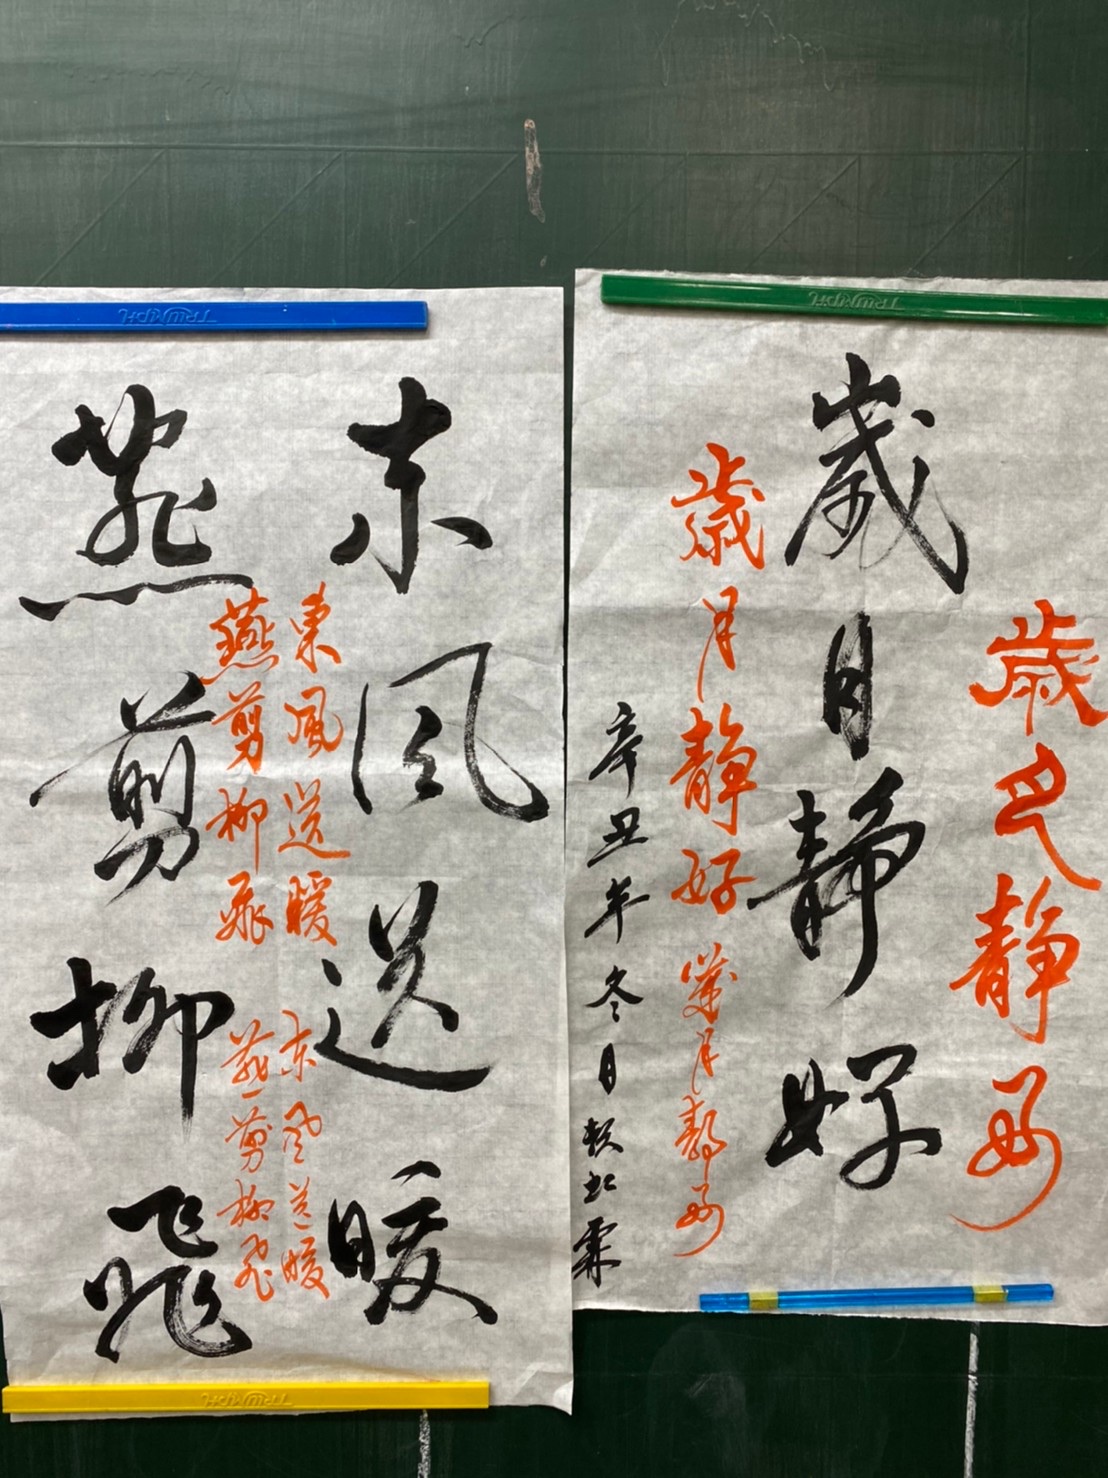 歲月靜好
歲月靜好
歲月靜好
歲月靜好
辛丑年冬日
東風送暖
東風送暖
東風送暖
燕剪柳飛
燕剪柳飛
燕剪柳飛